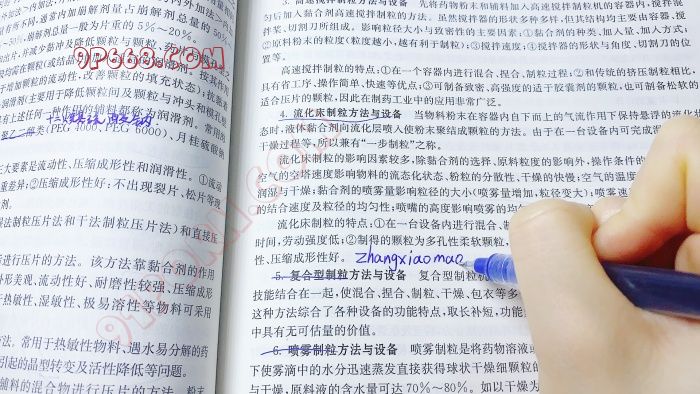 内外加法>二
有所不同,通常内加崩解剂量占崩解总量的50%
~50%,崩解剂总量一般为片重的5%~20%。
出片,并减少黏冲及降低颗粒与颗粒、药片
增加颗粒的流动性,改善颗粒的填充状态;抗黏
润滑剂(主要用于降低颗粒间及颗粒与冲头和模孔
有上述任何一种作用的辅料都称为润滑剂。常用
聚乙二醇类(PEG 4000、PEG 6000)、月桂硫酸
大要素是流动性、压缩成形性和润滑性。①流动
重差异;②压缩成形性好:不出现裂片、松片等
剂。
湿法制粒压片法和干法制粒压片法)和直接压
进行压片的方法。该方法靠黏合剂的作用
外形美观、流动性好、耐磨性较强、压缩成形
于热敏性、湿敏性、极易溶性等物料可采用
方法。常用于热敏性物料、遇水易分解的药
引起的晶型转变及活性降低等问题。
辅料的混合物进行压片的方法。粉末
3. 高速搅拌制粒方法与设备 先将药物粉末和辅料加入高速搅拌制粒机的容器内,搅拌混
匀后加入黏合剂高速搅拌制粒的方法。虽然搅拌器的形状多种多样,但其结构主要由容器、搅
拌桨、切割刀所组成。影响粒径大小与致密性的主要因素:①黏合剂的种类、加入量、加入方式;
②原料粉末的粒度(粒度越小,越有利于制粒);③搅拌速度;④搅拌器的形状与角度、切割刀的位
置等。
高速搅拌制粒的特点:①在一个容器内进行混合、捏合、制粒过程;②和传统的挤压制粒相比,
具有省工序、操作简单、快速等优点;③可制备致密、高强度的适于胶囊剂的颗粒,也可制备松软的
适合压片的颗粒,因此在制药工业中的应用非常广泛。
4. 流化床制粒方法与设备 当物料粉末在容器内自下而上的气流作用下保持悬浮的流化状
态时,液体黏合剂向流化层喷入使粉末聚结成颗粒的方法。由于在一台设备内可完成混
干燥过程等,所以兼有“一步制粒”之称。
流化床制粒的影响因素较多,除黏合剂的选择、原料粒度的影响外,操作条件的
空气的空塔速度影响物料的流态化状态、粉粒的分散性、干燥的快慢;空气的温度
润湿与干燥;黏合剂的喷雾量影响粒径的大小(喷雾量增加,粒径变大);喷雾速
的结合速度及粒径的均匀性;喷嘴的高度影响喷雾的均
流化床制粒的特点:①在一台设备内进行混合、制
时间,劳动强度低;②制得的颗粒为多孔性柔软颗粒,
性、压缩成形性好。 zhangxiaomao
5. 复合型制粒方法与设备 复合型制粒机
技能结合在一起,使混合、捏合、制粒、干燥、包衣等多
这种方法综合了各种设备的功能特点,取长补短,功能
中具有无可估量的价值。
6. 喷雾制粒方法与设备 喷雾制粒是将药物溶液或
下使雾滴中的水分迅速蒸发直接获得球状干燥细颗粒的
与干燥,原料液的含水量可达70%~80%。如以干燥为
9P668.COM